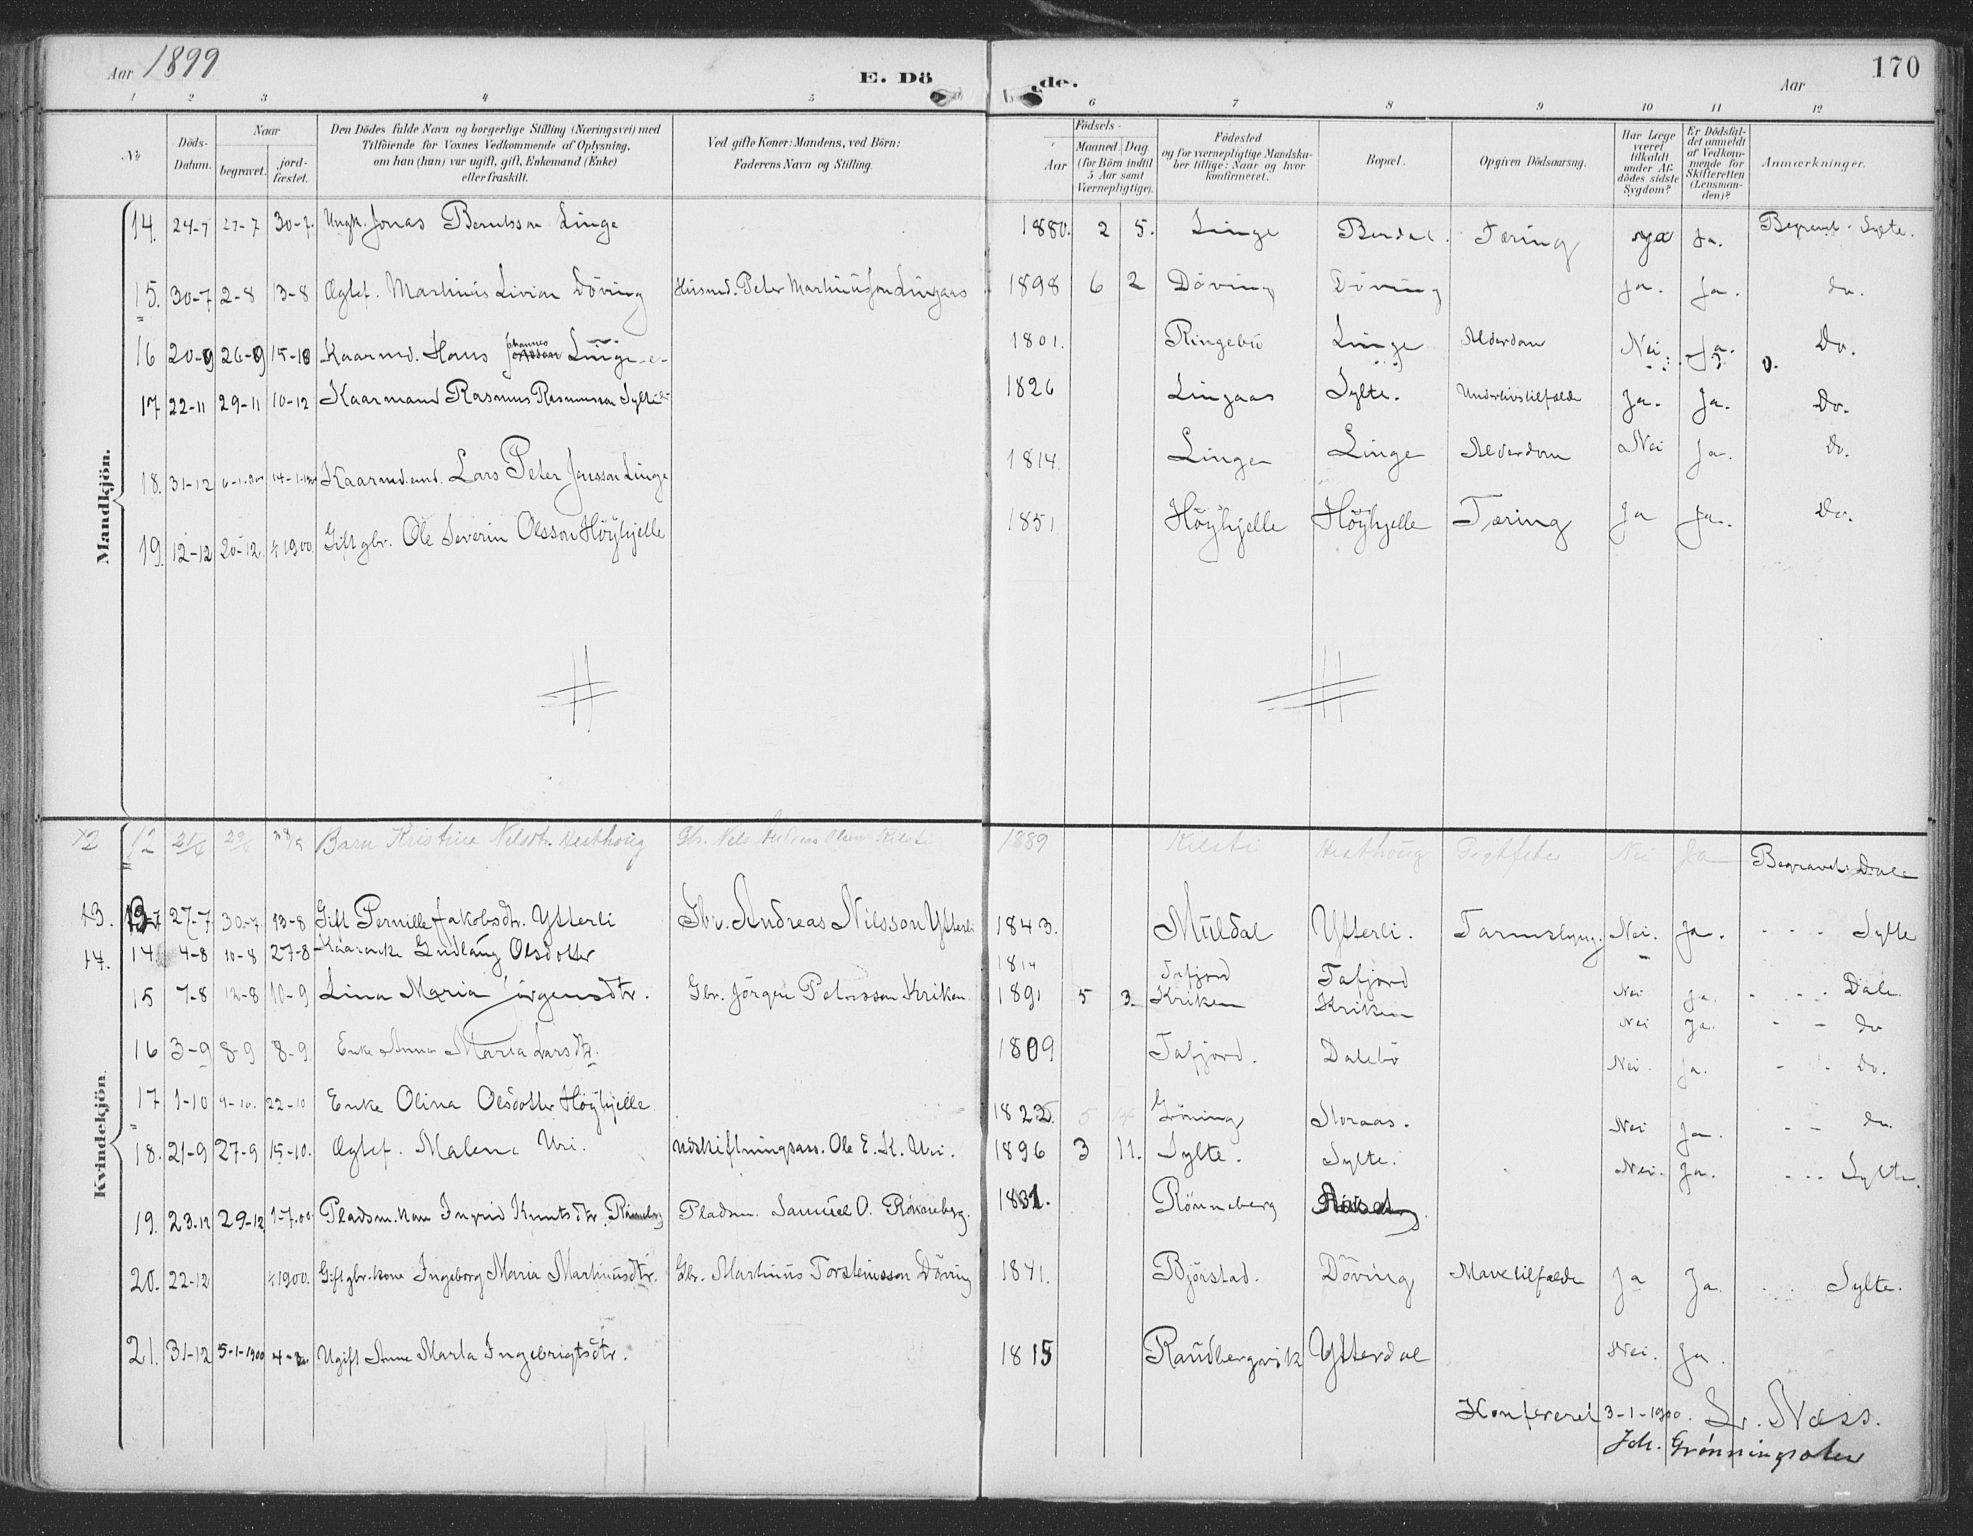 Aar 1899
E. Döde.
Aar
170
1 2 3 4 5 6 7 8 9 10 11 12
No
Döds-Datum.
Naar
begravet.
jord-fæstet.
Den Dödes fulde Navn og borgerlige Stilling (Næringsvei) med
Tilföiende for Voxnes Vedkommende af Oplysning,
om han (hun) var ugift, gift, Enkemand (Enke)
eller fraskilt.
Ved gifte Koner: Mandens, ved Börn:
Faderens Navn og Stilling.
Födsels-
Aar
Maaned. Dag.
(for Börn indtil
5 Aar samt
Værnepligtige).
Födested
og for værnepligtige Mandska-
ber tillige: Naar og hvor
konfirmeret.
Bopæl.
Opgiven Dödsaarsag.
Har Læge
været
tilkaldt
under Af-
dödes sidste
Sygdom?
Er Dödsfal-
det anmeldt
af Vedkom-
mende for
Skifteretten
(Lensman-
den)?
Anmærkninger.
Mandkjön.
14. 24-7 27-7 30-7. Ungk. Jonas Berntsson Linge 1880. 2 5. Linge Berdal. Tæring Ja. Begravet. Sylte.
15. 30-7 2-8 13-8 Ægtef. Martinus Livian Döving Husmd. Peter Martinusson Lingaas 1898 6 2 Döving Döving Ja. Ja. do.
16 20-9 26-9 15-10 Kaarmd. Hans Johannes Linge 1801. Ringebu Linge Alderdom Nei Ja. Do.
17 22-11 29-11 10-12 Kaarmand Rasmus Rasmusson Sylte 1826 Lingaas Sylte. Underlivstilfælde Ja. Ja. Do.
18. 31-12 Kaarmd. emd. Lars Peter Jensson Linge 1814. Linge Linge Alderdom Nei Ja. Do.
19. 12-12 20-12. 1/1 1900. Gift gbr. Ole Severin Olsson Höyhjelle 1851 Höyhjelle Höyhjelle Tæring Ja Ja. Do.
Kvindekjön.
12 12 Barn Kristine Nilsdt. Hesthoug Gbr. Nils 1889 Kilsti Hesthoug Gigtfeber Nei Ja Begravet: Dale
13. 27-7 30-7 13-8 Gift Pernille Jakobsdtr. Ytterli Gbr. Andreas Nilsson Ytterli 1843. Muldal Ytterli. Tarmslyng. Nei. Ja. Sylte
14. 14 4-8 10-8 27-8 Kaarenke Gudlaug Olsdotter 1814 Tafjord Tafjord Nei Ja. Dale.
15 7-8 12-8 10-9 Lina Maria Jörgensdtr. Gbr. Jörgen Petersson Kriken 1891 5 3 Kriken Kriken Nei Ja. do
16 3-9 8-9 8-9. Enke Anna Maria Larsdtr. 1809 Tafjord. Dalebö Nei. Ja. Do.
17 1-10 22-10 Enke Olina Olsdotter Höyhjelle 1822 5 14 Gröning Storaas. Nei Ja. do.
18. 21-9 27-9 15-10. Ægtef. Malene Uri. Udskiftningsass. Ole E. K. Uri. 1896 3 11. Sylte. Sylte. Nei. Ja. Sylte.
19. 23-12 29-12 1-7.00. Pladsm. kone Ingrid Knutsdtr. Pladsm. Samuel O. Rönneberg. 1831. Rönneberg
20. 22-12 1/1 1900. Gift gbr. kone Ingeborg Maria Martinusdtr. Gbr. Martinus Torsteinsson Döving 1841. Björstad. Döving Mavetilfælde Ja Ja. Sylte.
21. 31-12 5-1-1900 Ugift Anne Marta Ingebrigtsdtr. 1815 Raudbergvik Ytterdal Nei. Ja.
Konfereret 3-1-1900. Næss.
Joh. Grønningsæter